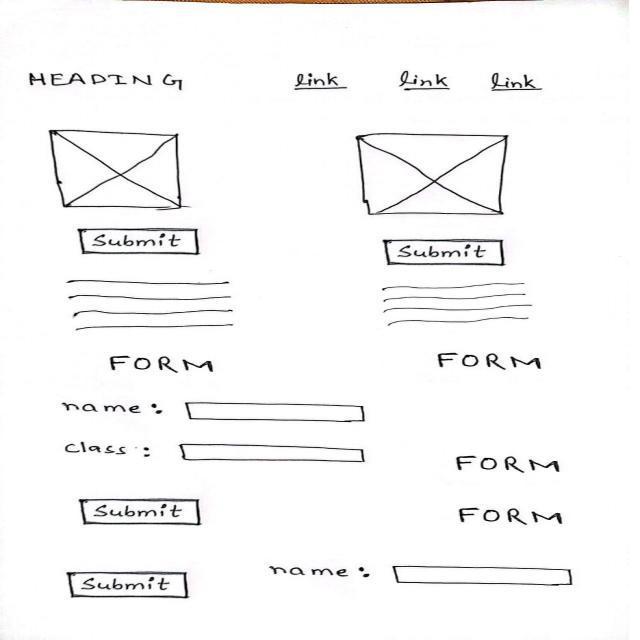 HEADING link link link
Submit Submit
FORM FORM
name:
class:
FORM
Submit FORM
Submit name: